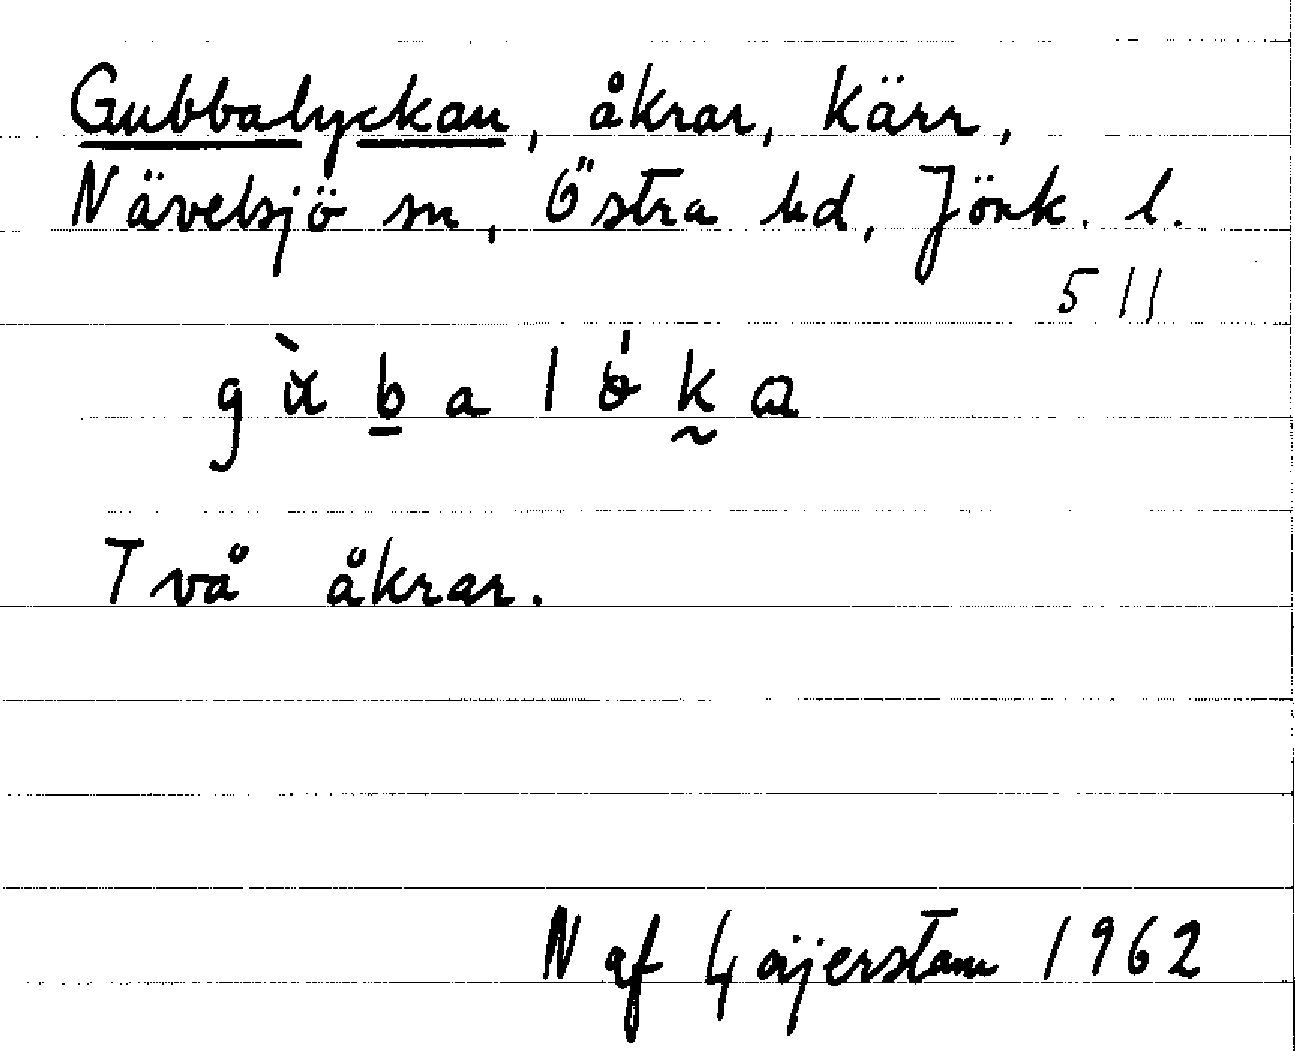 Gubbalyckan, åkrar, Kärr,
Nävelsjö sn, Östra hd, Jönk. l.
511
Två åkrar.
N af Geijerstam 1962